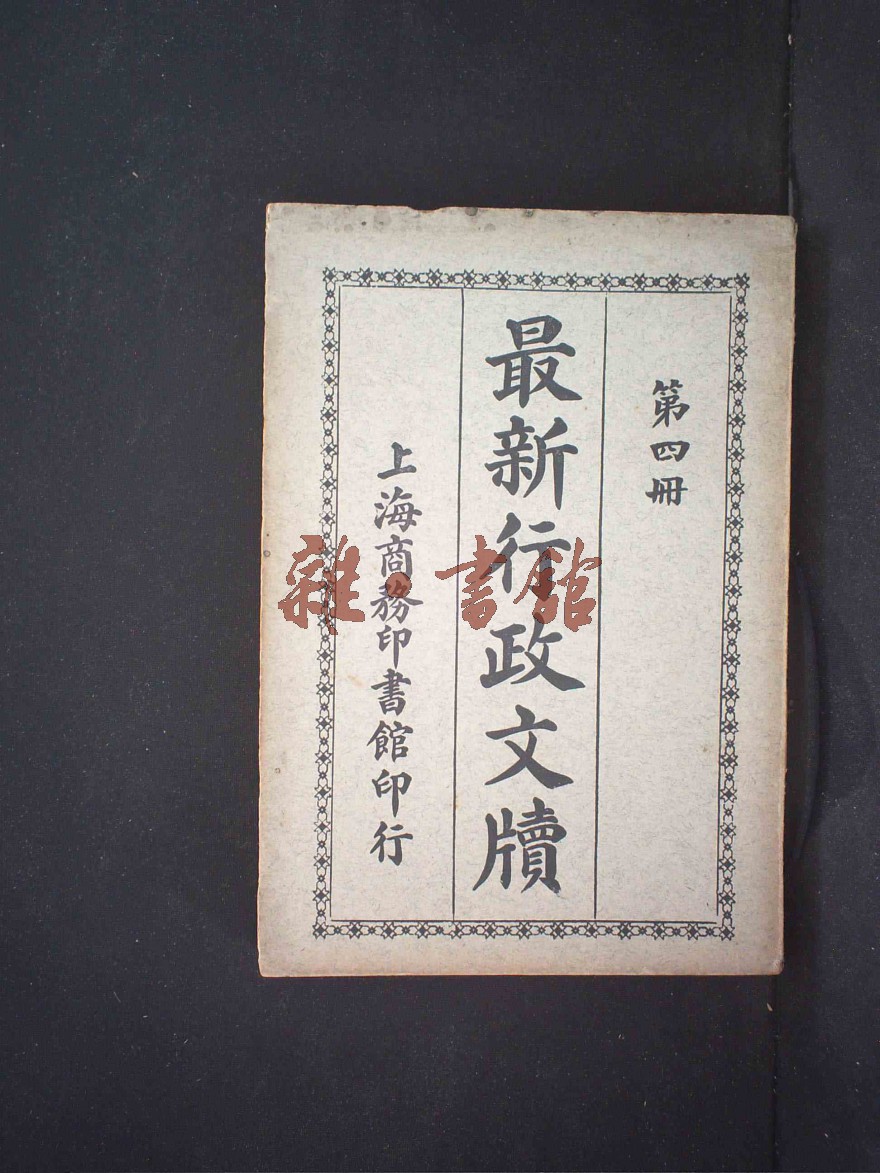 第四冊
最新行政文牘
上海商務印書館印行
雜·書館